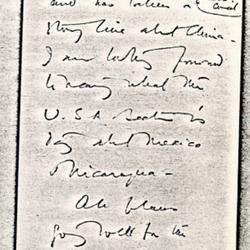 and has taken a
strong line about China -
I am looking forward
to hearing what the
U.S.A. Senator's
say about Mexico
& Nicaragua -
All plans
going well for the